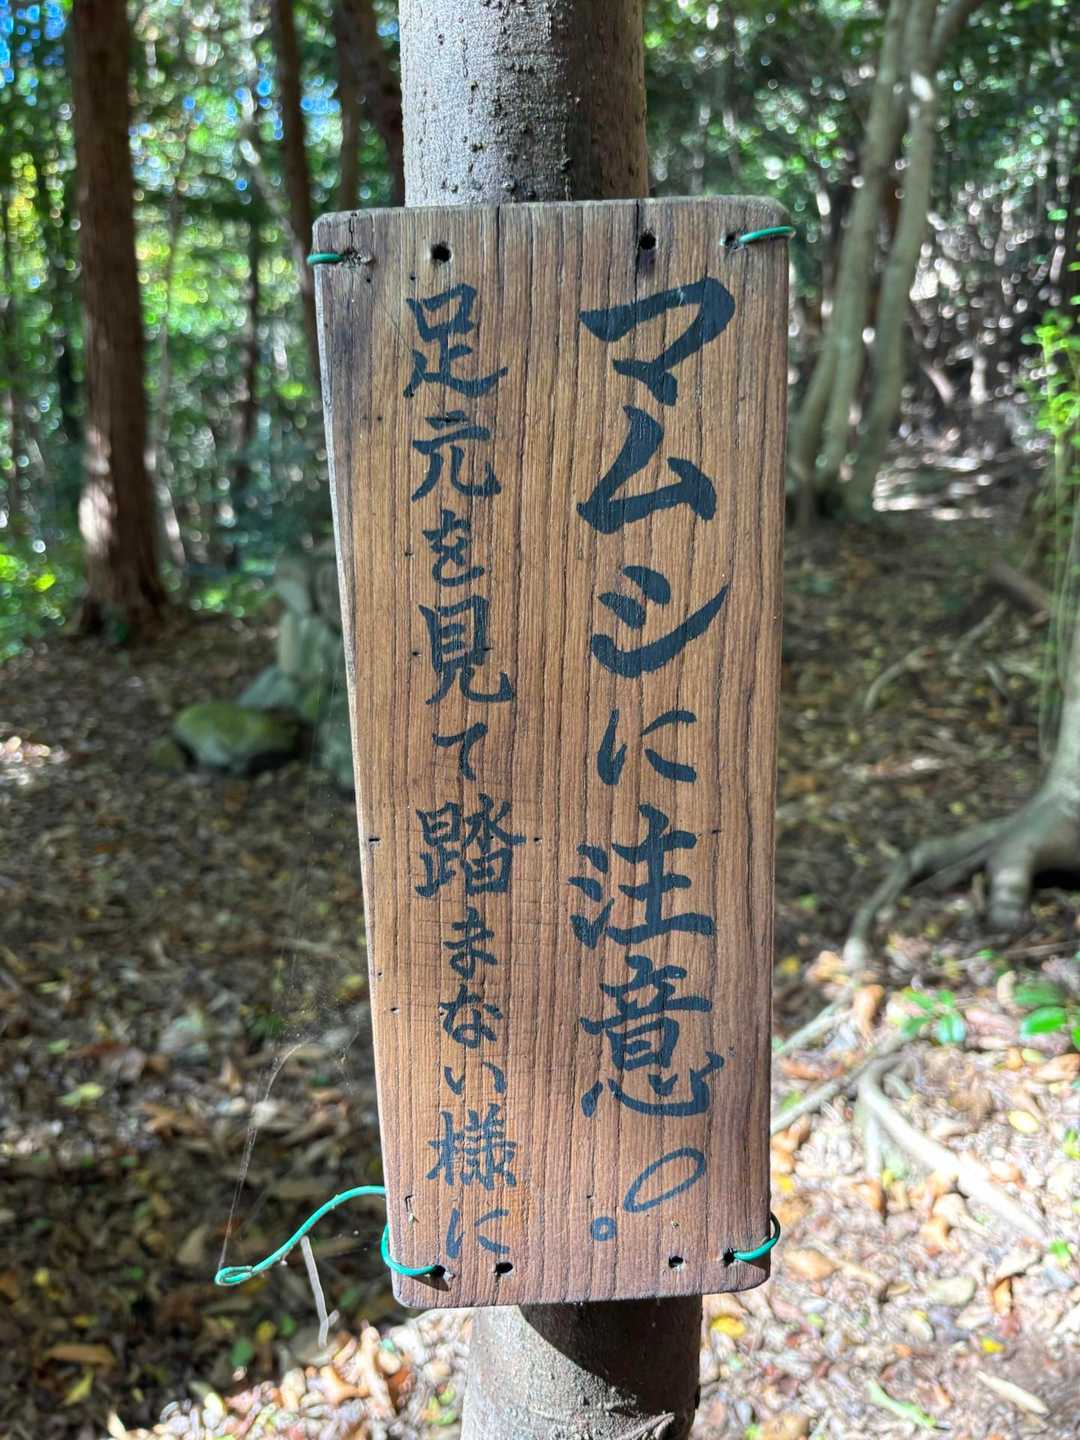 マムシに注意。
足元を見て踏まない様に